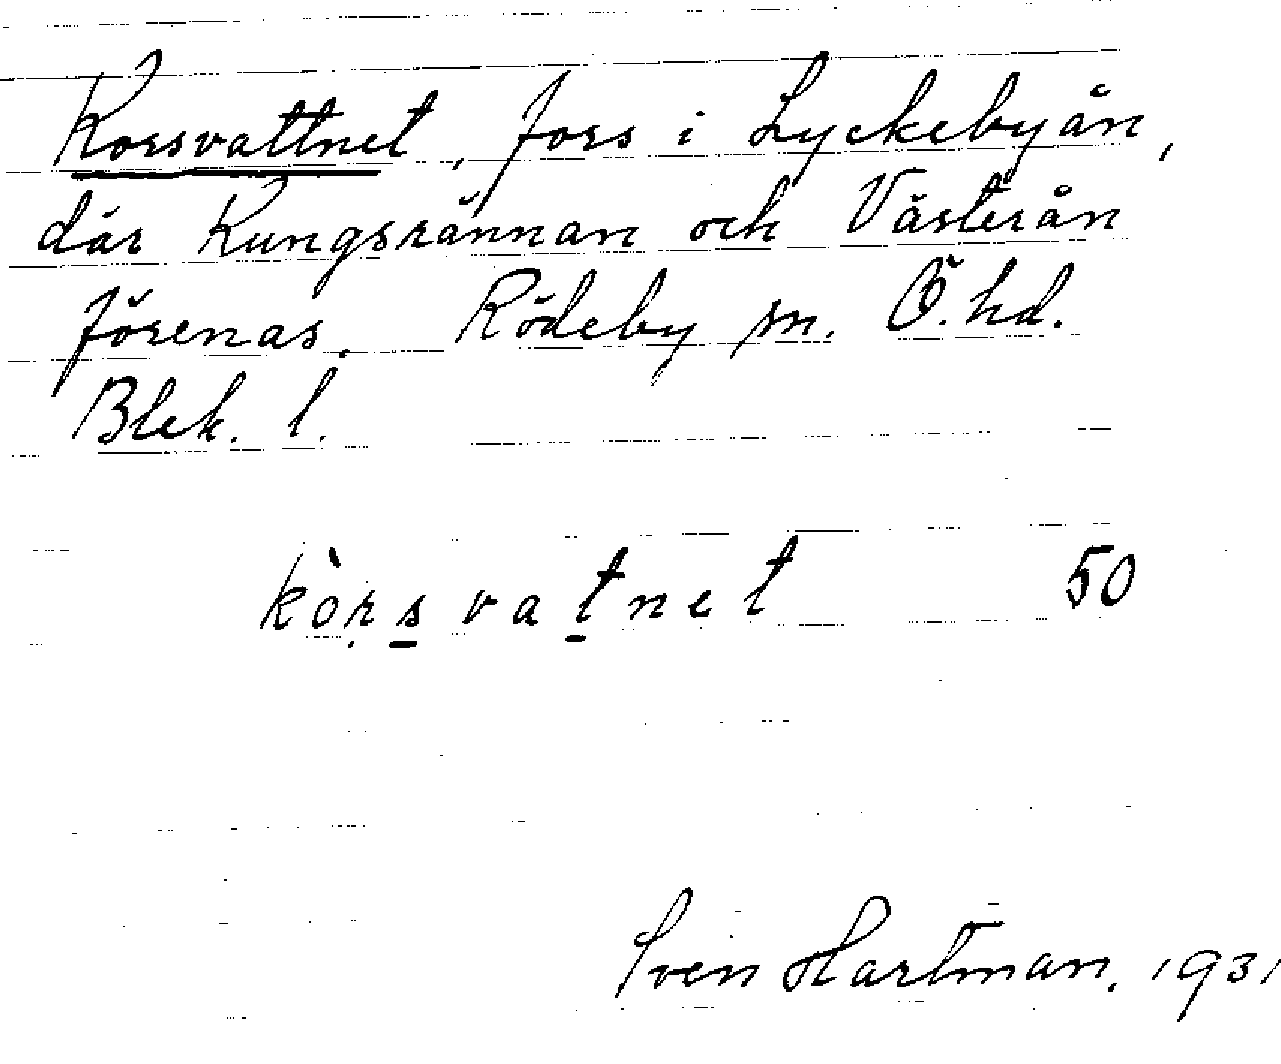 Korsvattnet, fors i Lyckebyån,
där Kungsrännan och Västerån
förenas. Rödeby sn. Ö. hd.
Blek. l.
kòṛs̲vat̲net 50
Sven Hartman. 1931